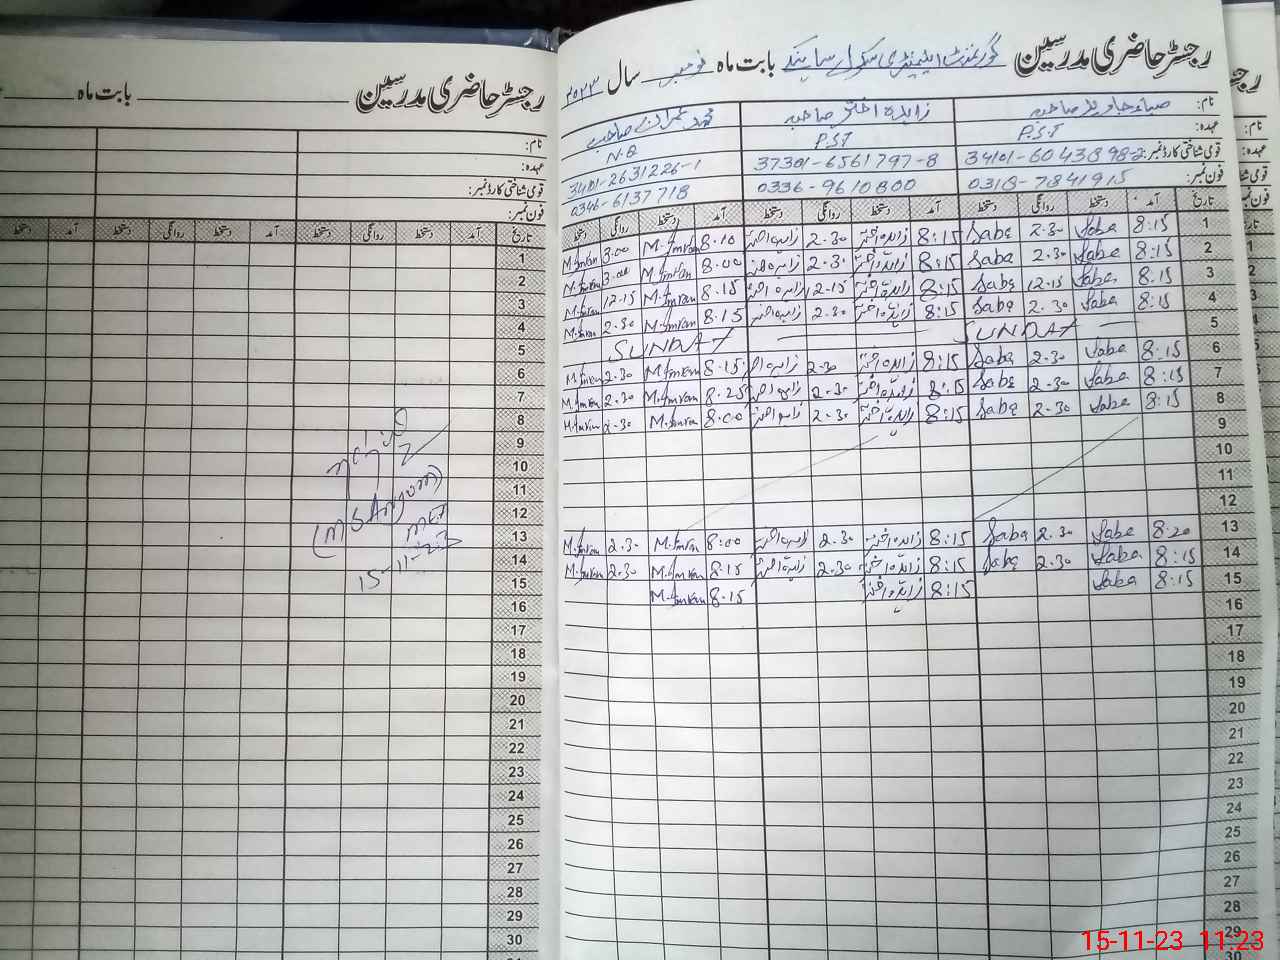 رجسٹر حاضری مدرسین گورنمنٹ ایلیمنٹری سکول بابت ماہ نومبر سال ۲۰۲۳
نام: صباء جاوید صاحبہ زاہدہ اختر صاحبہ محمد عمران صاحب
عہدہ: P.S.T P.S.T N.Q
قومی شناختی کارڈ نمبر: 34101-6043898-2 37301-6561797-8 34101-2631226-1
فون نمبر: 0318-7841915 0336-9610800 0346-6137718
تاریخ آمد دستخط روانگی دستخط آمد دستخط روانگی دستخط آمد دستخط روانگی دستخط
1 8:15 Saba 2.30 Saba 8:15 زاہدہ اختر 2.30 زاہدہ اختر 8.10 M.Imran 3.00 M.Imran
2 8:15 Saba 2.30 Saba 8:15 زاہدہ اختر 2.30 زاہدہ اختر 8.00 M.Imran 3.00 M.Imran
3 8:15 Saba 12.15 Saba 8:15 زاہدہ اختر 12.15 زاہدہ اختر 8.15 M.Imran 12.15 M.Imran
4 8:15 Saba 2.30 Saba 8:15 زاہدہ اختر 2.30 زاہدہ اختر 8.15 M.Imran 2.30 M.Imran
5 SUNDAY SUNDAY
6 8:15 Saba 2.30 Saba 8:15 زاہدہ اختر 2.30 زاہدہ اختر 8.15 M.Imran 2.30 M.Imran
7 8:15 Saba 2.30 Saba 8:15 زاہدہ اختر 2.30 زاہدہ اختر 8.25 M.Imran 2.30 M.Imran
8 8:15 Saba 2.30 Saba 8:15 زاہدہ اختر 2.30 زاہدہ اختر 8.00 M.Imran 2.30 M.Imran
9
10
11
12
13 8:20 Saba 2.30 Saba 8:15 زاہدہ اختر 2.30 زاہدہ اختر 8.00 M.Imran 2.30 M.Imran
14 8:15 Saba 2.30 Saba 8:15 زاہدہ اختر 2.30 زاہدہ اختر 8.15 M.Imran 2.30 M.Imran
15 8:15 Saba 8:15 زاہدہ اختر 8.15 M.Imran
16
17
18
19
20
21
22
23
24
25
26
27
28
29
30
رجسٹر حاضری مدرسین بابت ماہ
نام:
عہدہ:
قومی شناختی کارڈ نمبر:
فون نمبر:
تاریخ آمد دستخط روانگی دستخط آمد دستخط روانگی دستخط آمد دستخط
1
2
3
4
5
6
7
8
9
10
11
12
13
14
15
16
17
18
19
20
21
22
23
24
25
26
27
28
29
30
(M S Anjum)
MEA
15-11-23
15-11-23 11:23